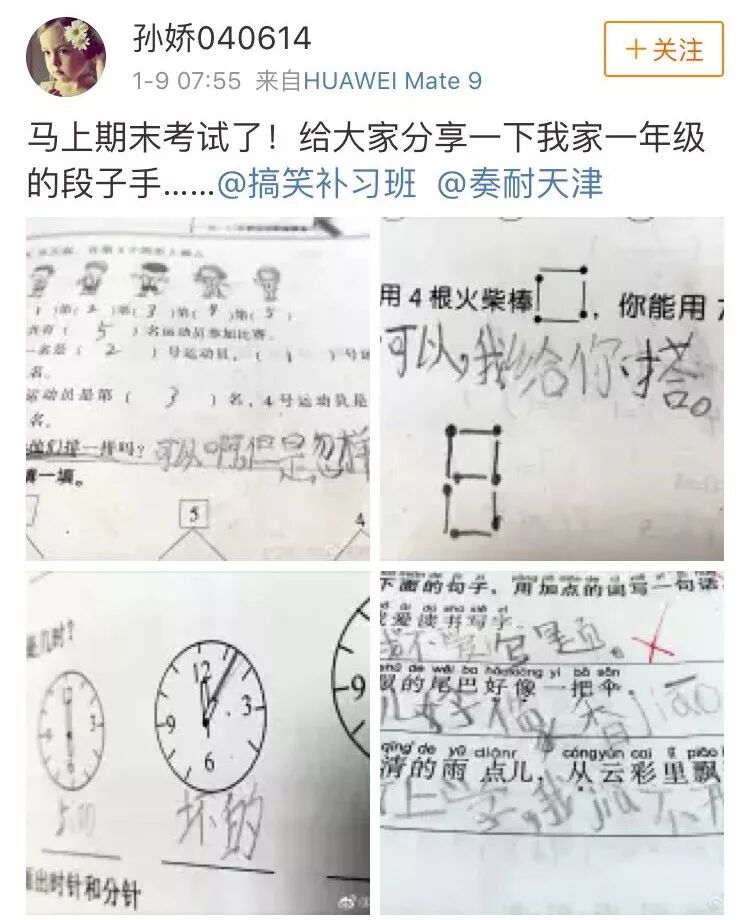 孙娇040614
+关注
1-9 07:55 来自HUAWEI Mate 9
马上期末考试了！给大家分享一下我家一年级
的段子手……@搞笑补习班 @奏耐天津
)第(2)第(3)第(4)第(5)
共有( 5 )名运动员参加比赛。
一名是( 2 )号运动员，( 1 )号
名。
运动员是第( 3 )名，4号运动员是
名。
他们排一排吗？可以啊但是怎样
填一填。
5
4
用4根火柴棒
，你能用
可以，我给你搭。
是几时？
12
9
3
6
12
3
6
9
9
坏的
画出时针和分针
下面的句子，用加点的词写一句话
爱读书写字。
我不爱写
dú shū xiě zì
de wěi ba hǎo xiàng yì bǎ sǎn
的尾巴好像一把伞。
像 香jiāo
qīng de yǔ diǎnr cóng yún cai lǐ piāo
清的雨点儿，从云彩里飘
上学，我jiu不